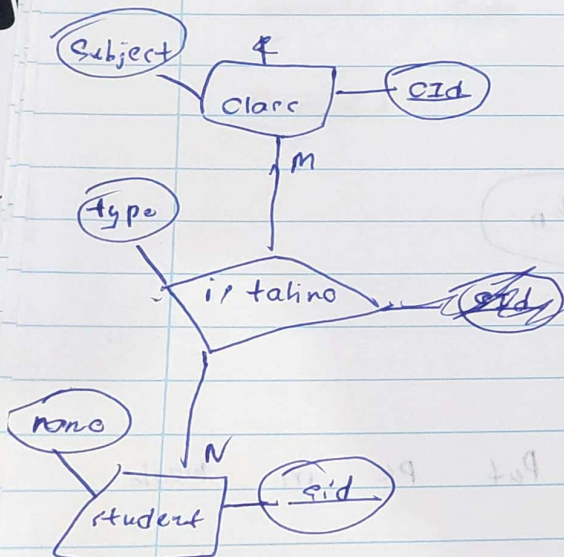 Subject
Class
CId
M
type
is taking
N
name
student
sid